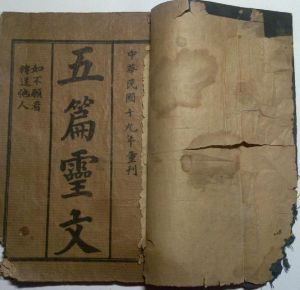 中華民國十九年重刊
五篇靈文
如不願看
轉送他人